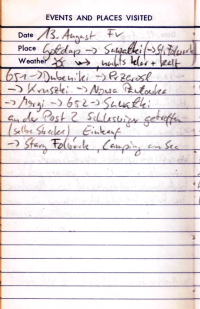 EVENTS AND PLACES VISITED
Date 13. August Fr
Place Gołdap -> Suwałki (-> St. Folwark)
Weather nachts klar + kalt
651 -> Dubeninki -> Przerośl
-> Kruszki -> Nowa
-> -> 652 -> Suwałki
an der Post 2 Schleswiger getroffen
(selbe Strecke) Einkauf
-> Stary Folwark, Camping am See